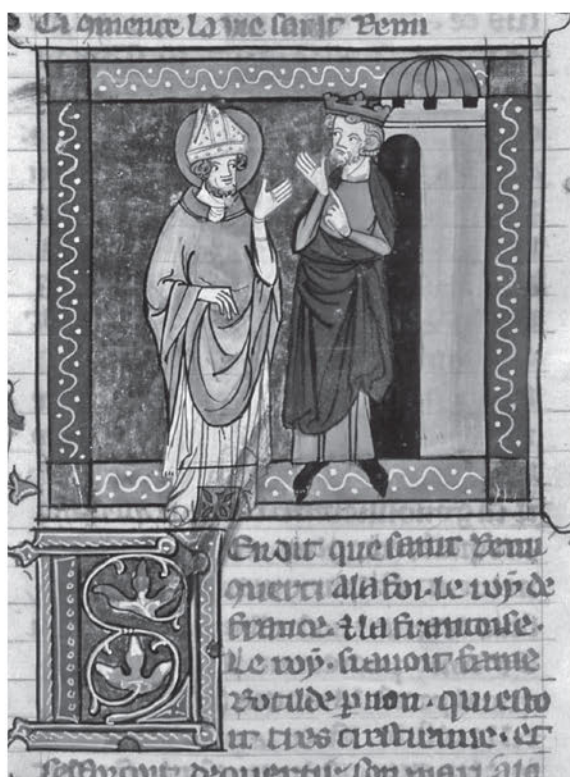 Ci 9mence la vie saint Remi
SEn dit que saint Remi
9verti a la foi. le roy de
france. ⁊ la francoise.
Le roy. si avoit fame
Rotilde p non. qui esto
it tres crestienne. et